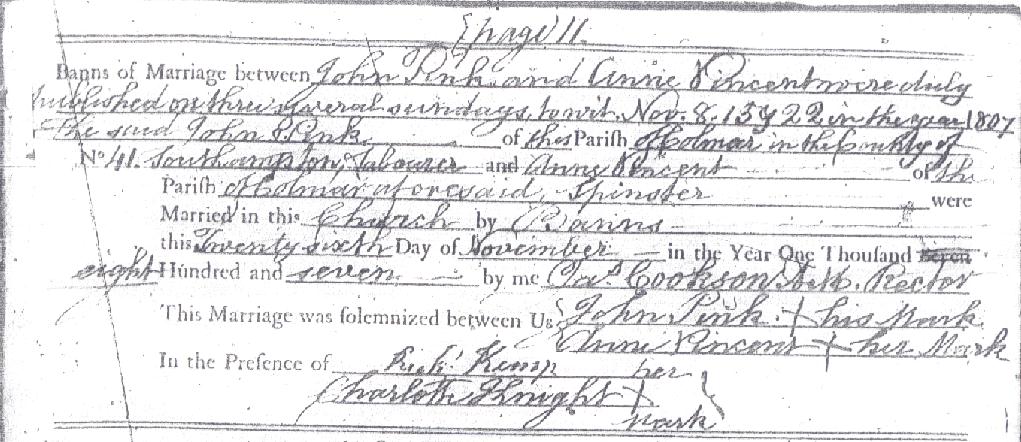 [page 11.
Banns of Marriage between John Pink and Anne Vincent were duly
published on three several sundays, to wit. Nov. 8. 15 & 22 in the year 1807
The said John Pink of this Parish of Colmar in the County of
No 41. Southampton, Labourer and Anne Vincent of the
Parish of Colmar aforesaid, Spinster were
Married in this Church by Banns
this Twenty sixth Day of November in the Year One Thousand Seven
eight Hundred and seven by me Cookson A.M. Rector
This Marriage was solemnized between Us John Pink. + his Mark
Anne Vincent + her Mark
In the Presence of Richd Kemp her
Charlotte Knight +
mark